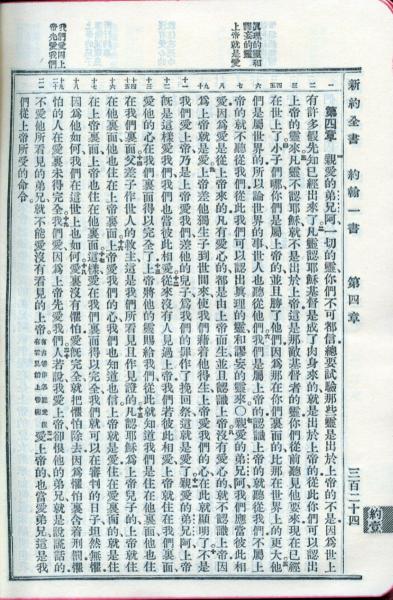 新約全書 約翰一書 第四章 三百二十四
約壹
真理的靈和
謬妄的靈
上帝就是愛
我們愛因上
帝先愛我們
第四章 親愛的弟兄阿一切的靈你們不可都信總要試驗那些靈是出於上帝的不是因為世上
有許多假先知已經出來了凡靈認耶穌基督是成了肉身來的就是出於上帝的從此你們可以認出
上帝的靈來凡靈不認耶穌就不是出於上帝這是那敵基督者的靈你們從前聽見他要來現在已經
在世上了小子們哪你們是屬上帝的並且勝了他們因為那在你們裏面的比那在世界上的更大他
們是屬世界的所以論世界的事世人也聽從他們我們是屬上帝的認識上帝的就聽從我們不屬上
帝的就不聽從我們從此我們可以認出真理的靈和謬妄的靈來○親愛的弟兄阿我們應當彼此相
愛因為愛是從上帝來的凡有愛心的都是由上帝而生並且認識上帝沒有愛心的就不認識上帝因
為上帝就是愛上帝差他獨生子到世間來使我們藉着他得生上帝愛我們的心在此就顯明了不是
我們愛上帝乃是上帝愛我們差他的兒子為我們的罪作了挽回祭這就是愛了親愛的弟兄阿上帝
既是這樣愛我們我們也當彼此相愛從來沒有人見過上帝我們若彼此相愛上帝就住在我們裏面
愛他的心在我們裏面得以完全了上帝將他的靈賜給我們從此就知道我們是住在他裏面他也住
在我們裏面父差子作世人的救主這是我們所看見且作見證的凡認耶穌為上帝兒子的上帝就住
在他裏面他也住在上帝裏面上帝愛我們的心我們也知道也信上帝就是愛住在愛裏面的就是住
在上帝裏面上帝也住在他裏面這樣愛在我們裏面得以完全我們就可以在審判的日子坦然無懼
因為他如何我們在這世上也如何愛裏沒有懼怕愛既完全就把懼怕除去因為懼怕裏含着刑罰懼
怕的人在愛裏未得完全我們愛因為上帝先愛我們人若說我愛上帝卻恨他的弟兄就是說謊話的
不愛他所看見的弟兄就不能愛沒有看見的上帝愛上帝的也當愛弟兄這是我
們從上帝所受的命令